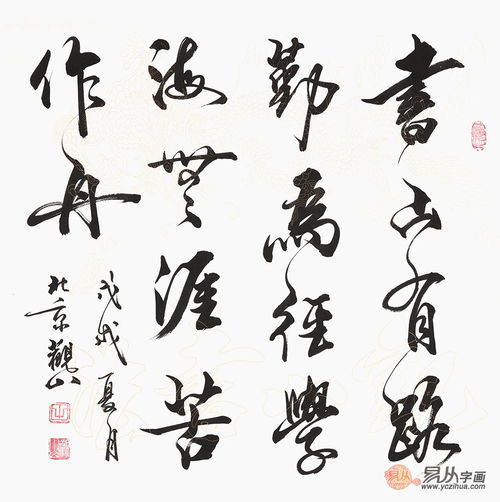 書山有路
勤為徑學
海無涯苦
作舟
戊戌夏月
北京觀山
易从字画
www.yczihua.com